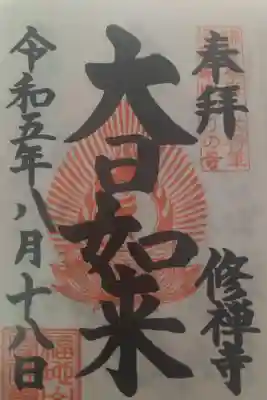 奉拝
修禅寺
大日如来
令和五年八月十八日